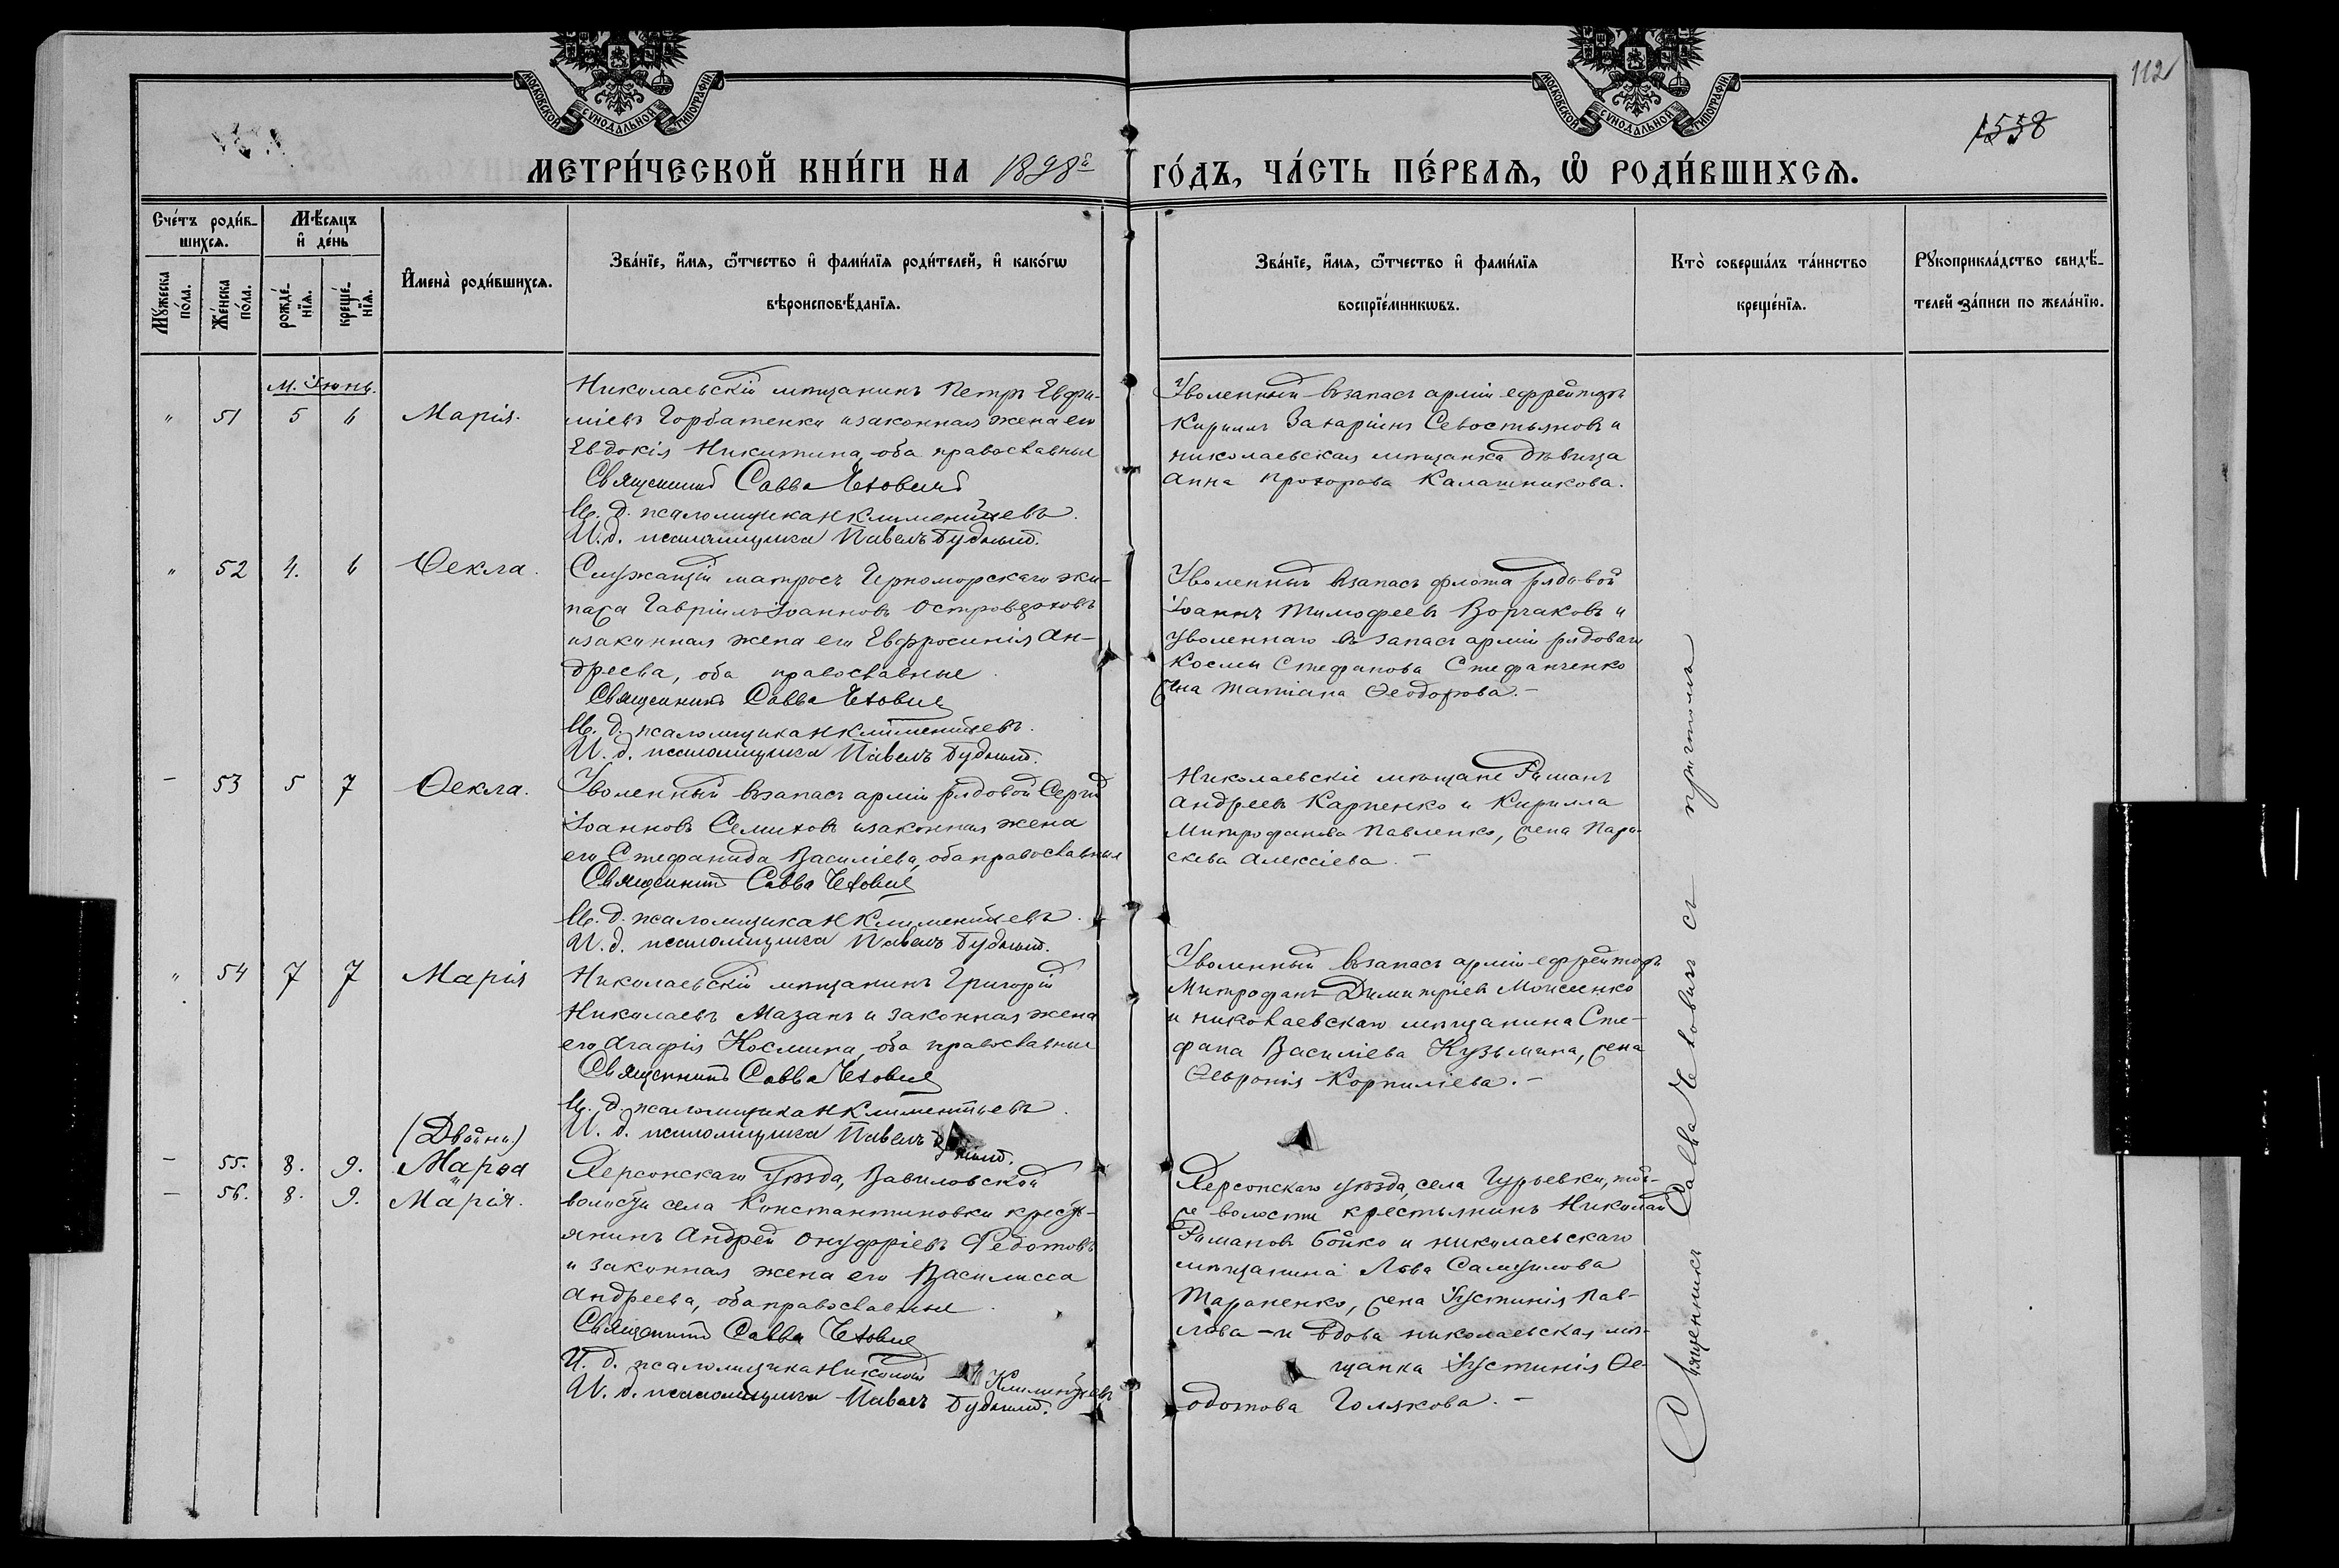 112
1558
МОСКОВСКОЙ СѴНОДАЛЬНОЙ ТИПОГРАФІИ
МОСКОВСКОЙ СѴНОДАЛЬНОЙ ТИПОГРАФІИ
МЕТРИ́ЧЕСКОЙ КНИ́ГИ НА 1898й
ГО́ДЪ, ЧА́СТЬ ПЕ́РВАѦ, Ѽ РОДИ́ВШИХСѦ.
Сче́тъ роди́в-
шихсѧ.
Мꙋ́жеска по́ла.
Же́нска по́ла.
Мѣ́сѧцъ
и҆ де́нь
рожде́-
нїѧ.
креще́-
нїѧ.
И҆мена̀ роди́вшихсѧ.
Зва́нїе, и҆́мѧ, ѻ҆́тчество и҆ фами́лїѧ роди́телей, и҆ како́гѡ
вѣроисповѣ́данїѧ.
Зва́нїе, и҆́мѧ, ѻ҆́тчество и҆ фами́лїѧ
воспрїе́мникѡвъ.
Кто̀ соверша́лъ та́инство
креще́нїѧ.
Рꙋкоприкла́дство свидѣ́-
телей за́писи по жела́нїю.
М. Іюнь.
" 51 5 6 Марія.
Николаевскій мѣщанинъ Петръ Евфи-
міевъ Горбатенки и законная жена его
Евдокія Никитина, оба православные
Священникъ Савва Чехович
И. д. псаломщика Н Климентьевъ.
И. д. псаломщика Павелъ Будный.
Уволенный въ запасъ арміи ефрейторъ
Кириллъ Захаріинъ Севостьяновъ и
николаевская мѣщанка дѣвица
Анна Прохорова Калашникова.
" 52 4. 6 Ѳекла.
Служащій матросъ Черноморскаго эки-
пажа Гавріилъ Іоанновъ Островерховъ
и законная жена его Евфросинія Ан-
дреева, оба православные.
Священникъ Савва Чехович
И. д. псаломщика Н Климентьевъ.
И. д. псаломщика Павелъ Будный.
Уволенный въ запасъ флота рядовой
Іоаннъ Тимофеевъ Ворчаковъ и
уволеннаго въ запасъ арміи рядоваго
Космы Стефанова Стефанченко
жена Татіана Ѳеодорова. –
– 53 5 7 Ѳекла.
Уволенный въ запасъ арміи рядовой Сергій
Іоанновъ Семиховъ и законная жена
его Стефанида Василіева, оба православные
Священникъ Савва Чехович
И. д. псаломщика Н Климентьевъ.
И. д. псаломщика Павелъ Будный.
Николаевскіе мѣщане Романъ
Андреевъ Карпенко и Кирилла
Митрофанова Павленко, жена Пара-
скева Алексіева. –
" 54 7 7 Марія
Николаевскій мѣщанинъ Григорій
Николаевъ Мазанъ и законная жена
его Агафія Космина, оба православные
Священникъ Савва Чехович
И. д. псаломщика Н Климентьевъ.
И. д. псаломщика Павелъ Будный.
Уволенный въ запасъ арміи ефрейторъ
Митрофанъ Димитріевъ Моисеенко
и николаевскаго мѣщанина Сте-
фана Василіева Кузьмина, жена
Ѳевронія Корниліева. –
(Двойни)
– 55. 8. 9. Марѳа
– 56. 8. 9. Марія.
Херсонскаго уѣзда, Вавиловской
волости села Константиновки крестъ-
янинъ Андрей Онуфріевъ Федотовъ
и законная жена его Василисса
Андреева, оба православные.
Священникъ Савва Чехович
И. д. псаломщика Николай Климентьевъ
И. д. псаломщика Павелъ Будный.
Херсонскаго уѣзда, села Гурьевки, той-
же волости крестьянинъ Николай
Романовъ Бойко и николаевскаго
мѣщанина Льва Самуилова
Тараненко, жена Іустинія Пав-
лова – и вдова николаевская мѣ-
щанка Іустинія Ѳе-
одотова Голякова. –
Священникъ Савва Чеховичъ съ причтомъ